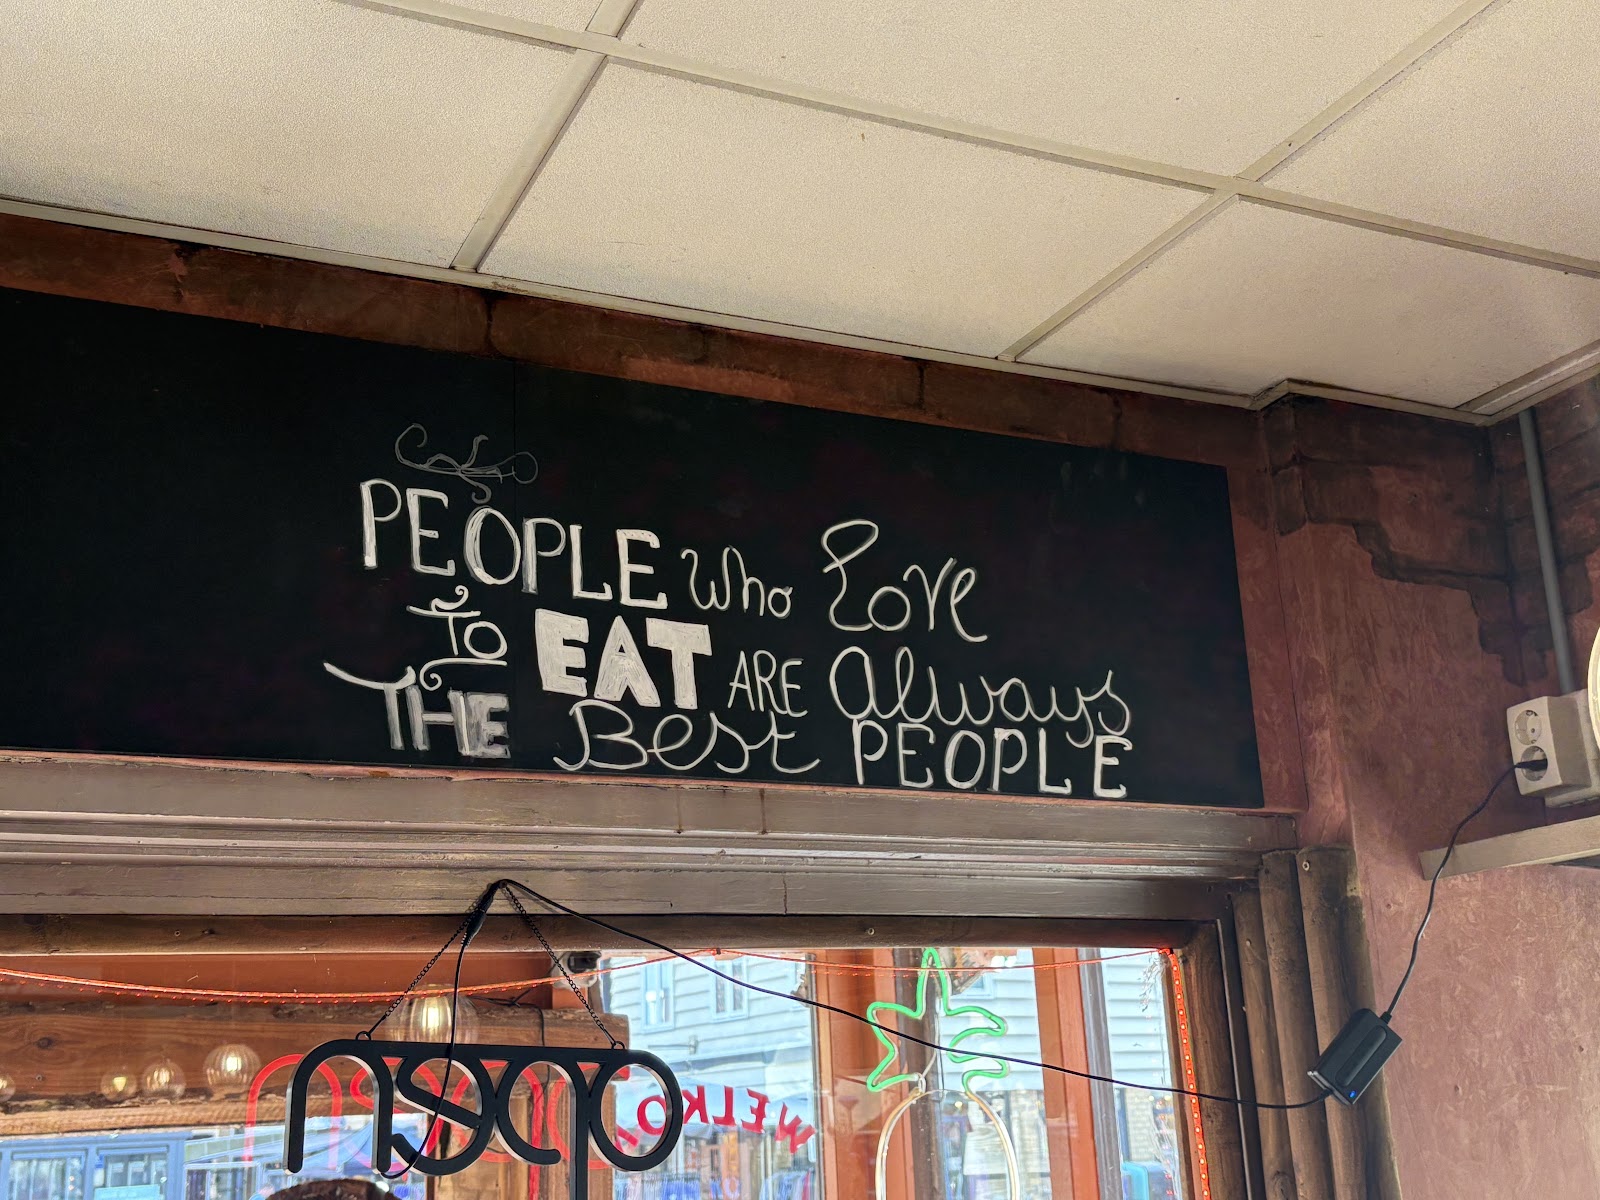 PEOPLE who Love
To EAT ARE Always
THE Best PEOPLE
open
WELKO